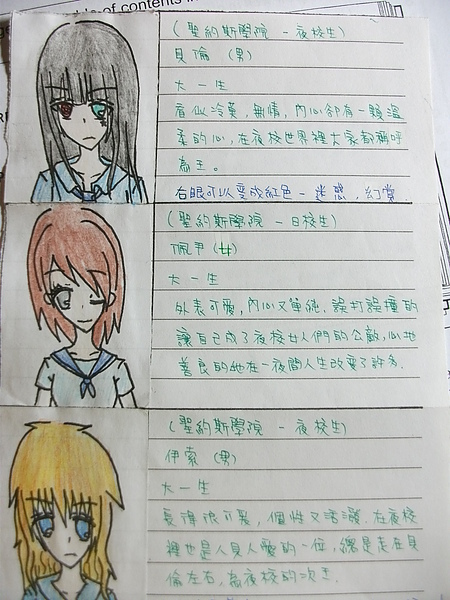 of contents in
(聖約斯學院 - 夜校生)
貝倫 (男)
大一生
看似冷莫,無情,內心卻有一顆溫
柔的心,在夜校世界裡大家都稱呼
為王。
右眼可以變成紅色 - 迷惑,幻覺
(聖約斯學院 - 日校生)
佩尹 (女)
大一生
外表可愛,內心又單純,誤打誤撞的
讓自己成了夜校女人們的公敵,心地
善良的她在一夜間人生改變了許多.
(聖約斯學院 - 夜校生)
伊索 (男)
大一生
長得很可愛,個性又活潑,在夜校
裡也是人見人愛的一位,總是走在貝
倫左右,為夜校的次王.